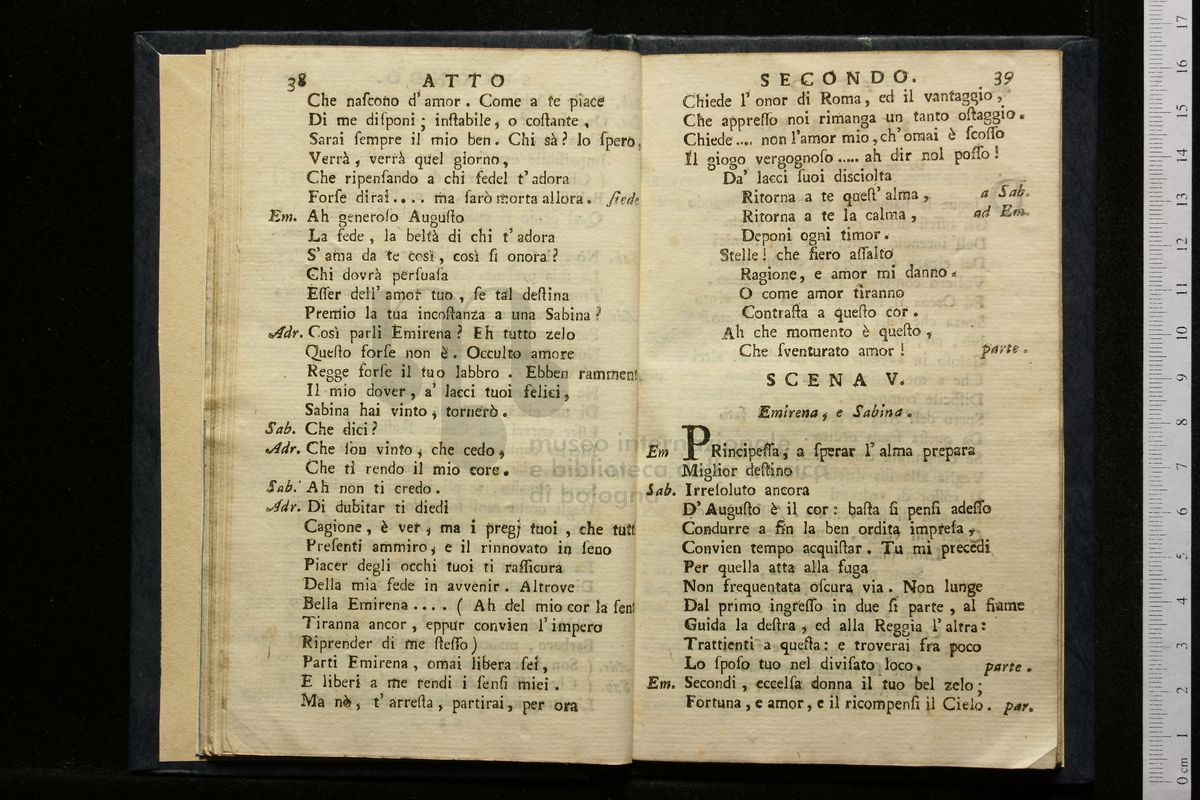 38 ATTO
Che naſcono d' amor. Come a te piace
Di me diſponi; inſtabile, o coſtante,
Sarai ſempre il mio ben. Chi sà? Io ſpero,
Verrà, verrà quel giorno,
Che ripenſando a chi fedel t' adora
Forſe dirai.... ma ſarò morta allora. ſiede
Em. Ah generoſo Auguſto
La fede, la beltà di chi t' adora
S' ama da te così, così ſi onora?
Chi dovrà perſuaſa
Eſſer dell' amor tuo, ſe tal deſtina
Premio la tua incoſtanza a una Sabina?
Adr. Così parli Emirena? Eh tutto zelo
Queſto forſe non è. Occulto amore
Regge forſe il tuo labbro. Ebben ramment
Il mio dover, a' lacci tuoi felici,
Sabina hai vinto, tornerò.
Sab. Che dici?
Adr. Che ſon vinto, che cedo,
Che ti rendo il mio core.
Sab. Ah non ti credo.
Adr. Di dubitar ti diedi
Cagione, è ver, ma i pregj tuoi, che tutt
Preſenti ammiro, e il rinnovato in ſeno
Piacer degli occhi tuoi ti raſſicura
Della mia fede in avvenir. Altrove
Bella Emirena.... ( Ah del mio cor la ſent
Tiranna ancor, eppur convien l' impero
Riprender di me ſteſſo)
Parti Emirena, omai libera ſei,
E liberi a me rendi i ſenſi miei.
Ma nò, t' arreſta, partirai, per ora
SECONDO. 39
Chiede l' onor di Roma, ed il vantaggio,
Che appreſſo noi rimanga un tanto oſtaggio.
Chiede.... non l'amor mio, ch' omai è ſcoſſo
Il giogo vergognoſo..... ah dir nol poſſo!
Da' lacci ſuoi disciolta
Ritorna a te queſt' alma, a Sab.
Ritorna a te la calma, ad Em.
Deponi ogni timor.
Stelle! che fiero aſſalto
Ragione, e amor mi danno.
O come amor tiranno
Contraſta a queſto cor.
Ah che momento è queſto,
Che ſventurato amor! parte.
SCENA V.
Emirena, e Sabina.
Em PRincipeſſa, a ſperar l' alma prepara
Miglior deſtino
Sab. Irreſoluto ancora
D' Auguſto è il cor: baſta ſi penſi adeſſo
Condurre a fin la ben ordita impreſa,
Convien tempo acquiſtar. Tu mi precedi
Per quella atta alla fuga
Non frequentata oſcura via. Non lunge
Dal primo ingreſſo in due ſi parte, al fiume
Guida la deſtra, ed alla Reggia l' altra:
Trattienti a queſta: e troverai fra poco
Lo ſpoſo tuo nel diviſato loco. parte.
Em. Secondi, eccelſa donna il tuo bel zelo;
Fortuna, e amor, e il ricompenſi il Cielo. par.
museo internazionale
e biblioteca della musica
di bologna
0 cm 1 2 3 4 5 6 7 8 9 10 11 12 13 14 15 16 17